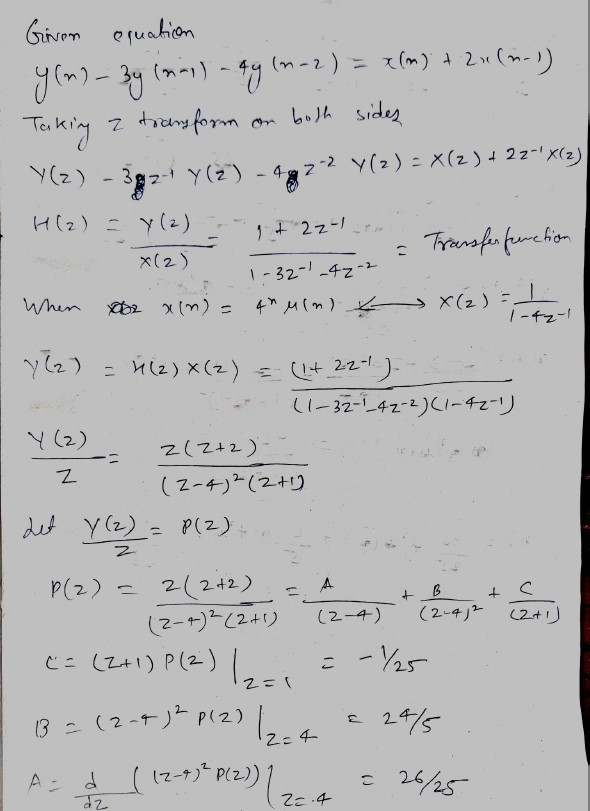 Given equation
y(n) - 3y(n-1) - 4y(n-2) = x(n) + 2x(n-1)
Taking z transform on both sides
Y(z) - 3z⁻¹ Y(z) - 4z⁻² Y(z) = X(z) + 2z⁻¹X(z)
H(z) = Y(z)/X(z) = (1 + 2z⁻¹)/(1 - 3z⁻¹ - 4z⁻²) = Transfer function
When x(n) = 4ⁿ u(n) ⟷ X(z) = 1/(1-4z⁻¹)
Y(z) = H(z) X(z) = (1 + 2z⁻¹)/((1-3z⁻¹-4z⁻²)(1-4z⁻¹))
Y(z)/z = z(z+2)/((z-4)²(z+1))
Let Y(z)/z = P(z)
P(z) = z(z+2)/((z-4)²(z+1)) = A/(z-4) + B/(z-4)² + C/(z+1)
C = (z+1) P(z) |z=1 = -1/25
B = (z-4)² P(z) |z=4 = 24/5
A = d/dz ((z-4)² P(z)) |z=4 = 26/25